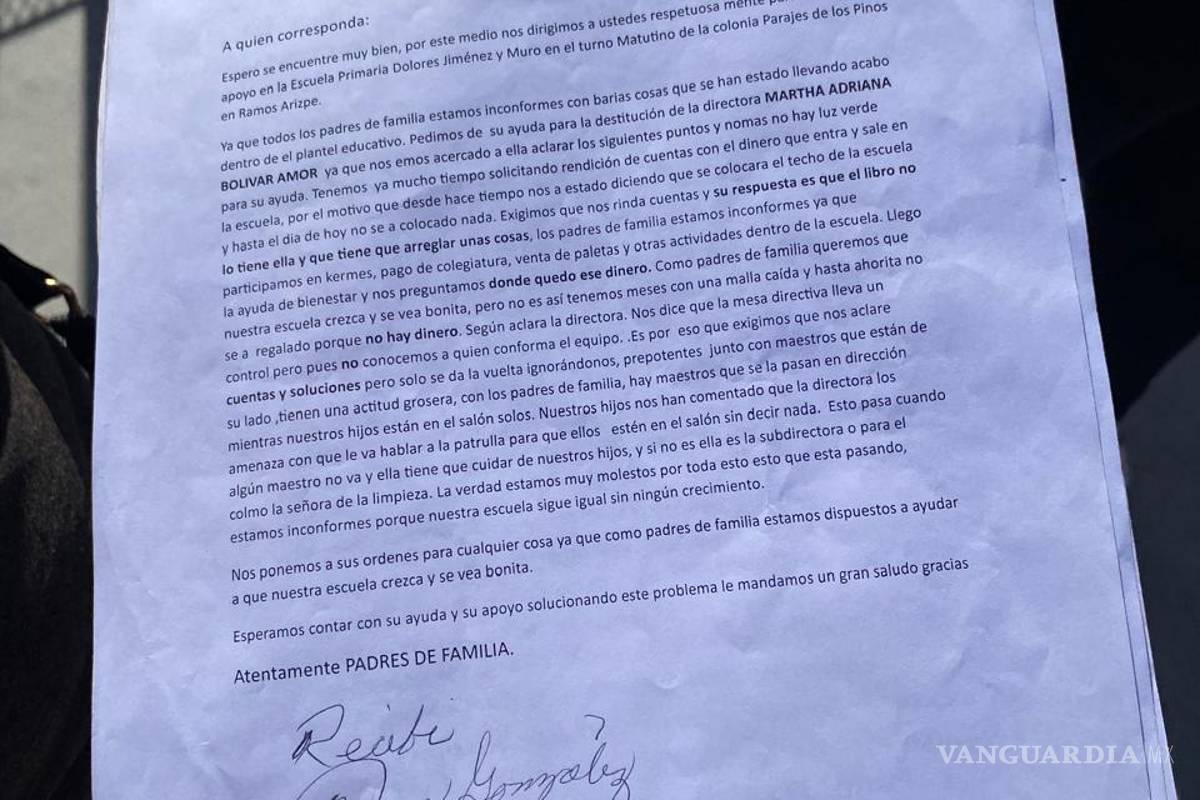 A quien corresponda:
Espero se encuentre muy bien, por este medio nos dirigimos a ustedes respetuosa mente
apoyo en la Escuela Primaria Dolores Jiménez y Muro en el turno Matutino de la colonia Parajes de los Pinos
en Ramos Arizpe.
Ya que todos los padres de familia estamos inconformes con barias cosas que se han estado llevando acabo
dentro de el plantel educativo. Pedimos de su ayuda para la destitución de la directora MARTHA ADRIANA
BOLIVAR AMOR ya que nos emos acercado a ella aclarar los siguientes puntos y nomas no hay luz verde
para su ayuda. Tenemos ya mucho tiempo solicitando rendición de cuentas con el dinero que entra y sale en
la escuela, por el motivo que desde hace tiempo nos a estado diciendo que se colocara el techo de la escuela
y hasta el dia de hoy no se a colocado nada. Exigimos que nos rinda cuentas y su respuesta es que el libro no
lo tiene ella y que tiene que arreglar unas cosas, los padres de familia estamos inconformes ya que
participamos en kermes, pago de colegiatura, venta de paletas y otras actividades dentro de la escuela. Llego
la ayuda de bienestar y nos preguntamos donde quedo ese dinero. Como padres de familia queremos que
nuestra escuela crezca y se vea bonita, pero no es así tenemos meses con una malla caída y hasta ahorita no
se a regalado porque no hay dinero. Según aclara la directora. Nos dice que la mesa directiva lleva un
control pero pues no conocemos a quien conforma el equipo. .Es por eso que exigimos que nos aclare
cuentas y soluciones pero solo se da la vuelta ignorándonos, prepotentes junto con maestros que están de
su lado ,tienen una actitud grosera, con los padres de familia, hay maestros que se la pasan en dirección
mientras nuestros hijos están en el salón solos. Nuestros hijos nos han comentado que la directora los
amenaza con que le va hablar a la patrulla para que ellos estén en el salón sin decir nada. Esto pasa cuando
algún maestro no va y ella tiene que cuidar de nuestros hijos, y si no es ella es la subdirectora o para el
colmo la señora de la limpieza. La verdad estamos muy molestos por toda esto esto que esta pasando,
estamos inconformes porque nuestra escuela sigue igual sin ningún crecimiento.
Nos ponemos a sus ordenes para cualquier cosa ya que como padres de familia estamos dispuestos a ayudar
a que nuestra escuela crezca y se vea bonita.
Esperamos contar con su ayuda y su apoyo solucionando este problema le mandamos un gran saludo gracias
Atentamente PADRES DE FAMILIA.
Recibi
González
VANGUARDIA MX